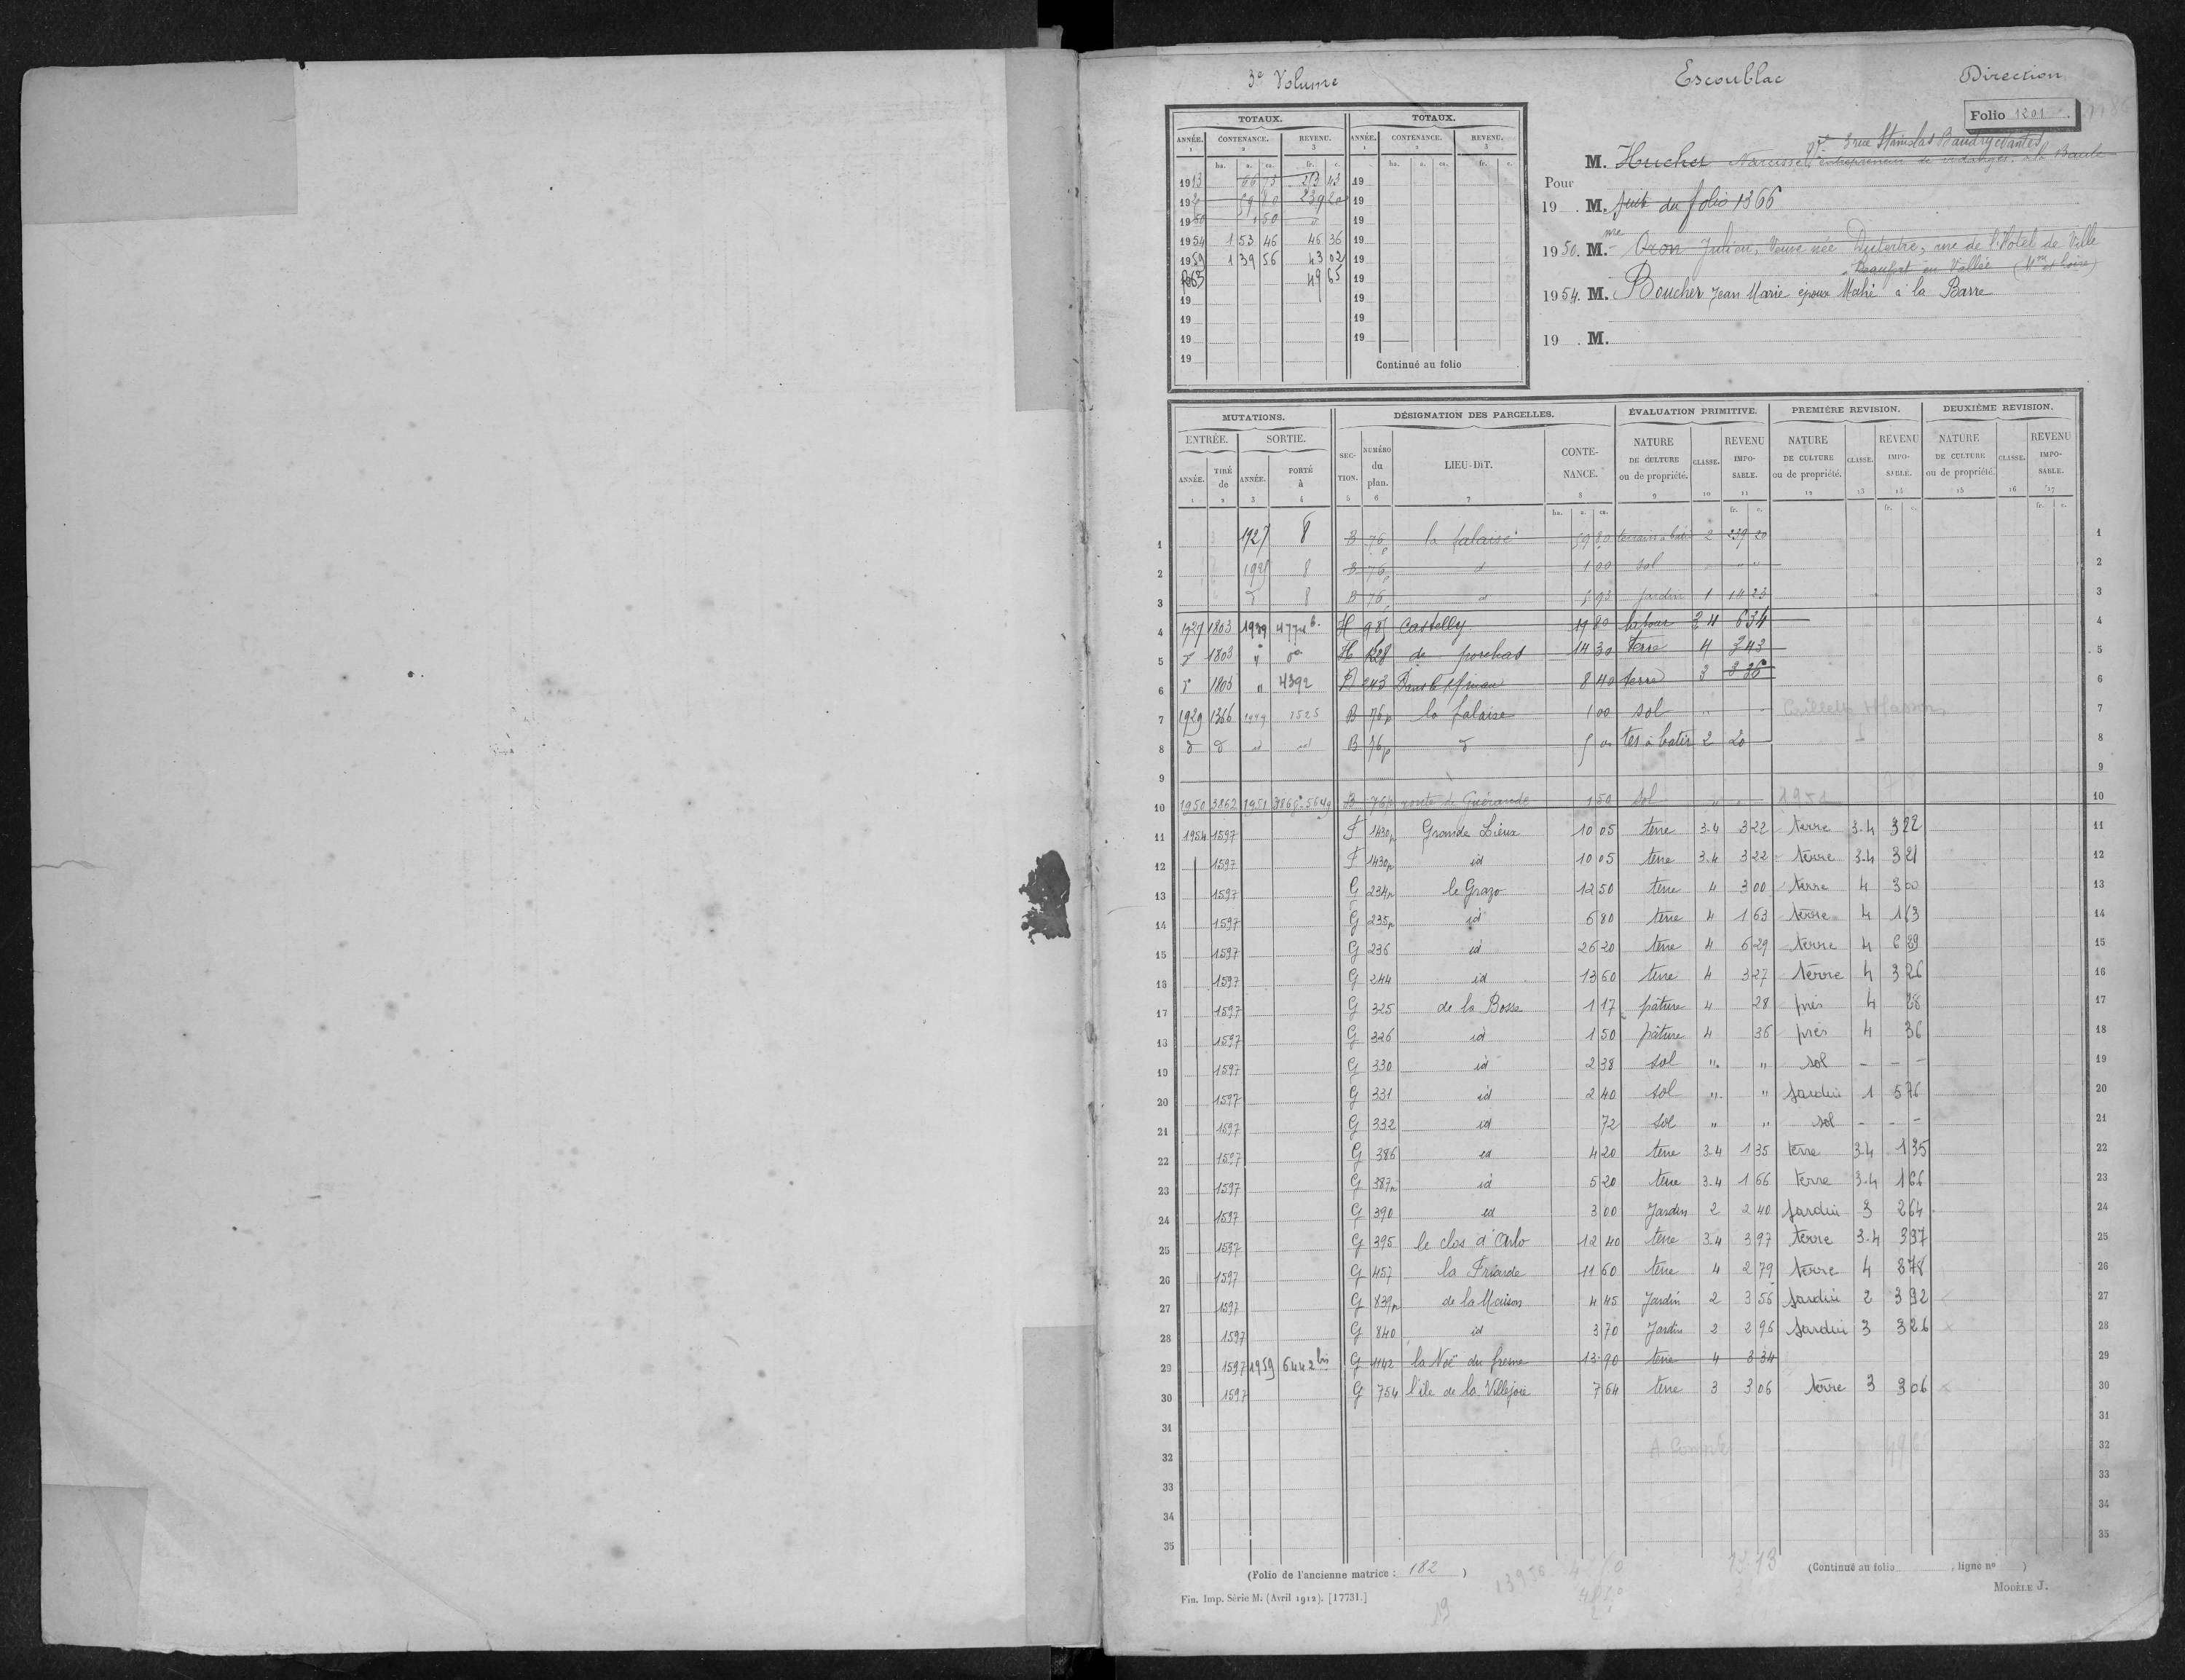 3e Volume
Escoublac
Direction
Folio 1201.
TOTAUX. TOTAUX.
ANNÉE. CONTENANCE. REVENU. ANNÉE. CONTENANCE. REVENU.
1 2 3 1 2 3
ha. a. ca. fr. c. ha. a. ca. fr. c.
1913 66 73 253 43 19
192 59 80 239 20 19
1950 1 50 " 19
1954 1 53 46 46 36 19
1959 1 39 56 43 02 19
1963 49 65 19
19 19
19 19
19 19
19
Continué au folio
3 rue Stanislas Baudry Nantes
M. Hucher Narcisse, entrepreneur de vidanges à la Baule
Pour
19 . M. suite du folio 1366
1950. M.me Oron Julien, Veuve née Dutertre, rue de l'Hotel de Ville
Beaufort en Vallée (M. et Loire)
1954. M. Boucher Jean Marie époux Mahé à la Barre
19 . M.
MUTATIONS. DÉSIGNATION DES PARCELLES. ÉVALUATION PRIMITIVE. PREMIÈRE REVISION. DEUXIÈME REVISION.
ENTRÉE. SORTIE.
ANNÉE. TIRÉ de ANNÉE. PORTÉ à SECTION. NUMÉRO du plan. LIEU-DIT. CONTENANCE. NATURE DE CULTURE ou de propriété. CLASSE. REVENU IMPOSABLE. NATURE DE CULTURE ou de propriété. CLASSE. REVENU IMPOSABLE. NATURE DE CULTURE ou de propriété. CLASSE. REVENU IMPOSABLE.
1 2 3 4 5 6 7 8 9 10 11 12 13 15 15 16 17
ha. a. ca. fr. c. fr. c. fr. c.
1 1927 8 B 76p la falaise 59 80 terrain à bâtir 2 239 20 1
2 1921 8 B 76p d 1 00 sol " " 2
3 8 B 76p d 5 93 jardin 1 14 23 3
4 1927 1803 1939 4774 b. H 98 Castelly 19 80 labour 3 4 6 34 4
5 d 1803 " do H 528 de porchas 14 30 terre 4 3 43 5
6 d 1803 " 4392 243 8 40 terre 3 3 36 6
7 1929 1366 1949 1525 B 76p la falaise 1 00 sol " 7
8 d d B 76p d 5 00 ter à batir 2 20 8
9 9
10 1950 3862 1951 B 76p route de Guérande 1 50 sol " " 1951 10
11 1954 1597 F 1430p Grande Lieux 10 05 terre 3.4 3 22 terre 3.4 3 22 11
12 1597 F 1430p id 10 05 terre 3.4 3 22 terre 3.4 3 21 12
13 1597 G 234p le Grazo 12 50 terre 4 3 00 terre 4 3 00 13
14 1597 G 235p id 6 80 terre 4 1 63 terre 4 1 63 14
15 1597 G 236 id 26 20 terre 4 6 29 terre 4 6 29 15
16 1597 G 244 id 13 60 terre 4 3 27 terre 4 3 26 16
17 1597 G 325 de la Bosse 1 17 pâture 4 28 prés 4 28 17
18 1597 G 326 id 1 50 pâture 4 36 prés 4 36 18
19 1597 G 330 id 2 38 sol " " sol - - - 19
20 1597 G 331 id 2 40 sol " " Jardin 1 5 76 20
21 1597 G 332 id 72 sol " " sol - - - 21
22 1597 G 386 id 4 20 terre 3.4 1 35 terre 3.4 1 35 22
23 1597 G 387p id 5 20 terre 3.4 1 66 terre 3.4 1 66 23
24 1597 G 390 id 3 00 Jardin 2 2 40 Jardin 3 2 64 24
25 1597 G 395 le clos d'Arlo 12 40 terre 3.4 3 97 terre 3.4 3 37 25
26 1597 G 457 la Friarde 11 60 terre 4 2 79 terre 4 2 78 26
27 1597 G 839p de la Maison 4 45 Jardin 2 3 56 Jardin 2 3 92 27
28 1597 G 840 id 3 70 Jardin 2 2 96 Jardin 3 3 26 28
29 1597 1959 6442 bis G 1142 la Noë du fresne 13 90 terre 4 3 34 29
30 1597 G 754 l'ile de la Villejoie 7 64 terre 3 3 06 terre 3 3 06 30
31 31
32 32
33 33
34 34
35 35
(Folio de l'ancienne matrice : 182 )
(Continué au folio , ligne no )
Fin. Imp. Série M. (Avril 1912). [17731.]
19
MODÈLE J.